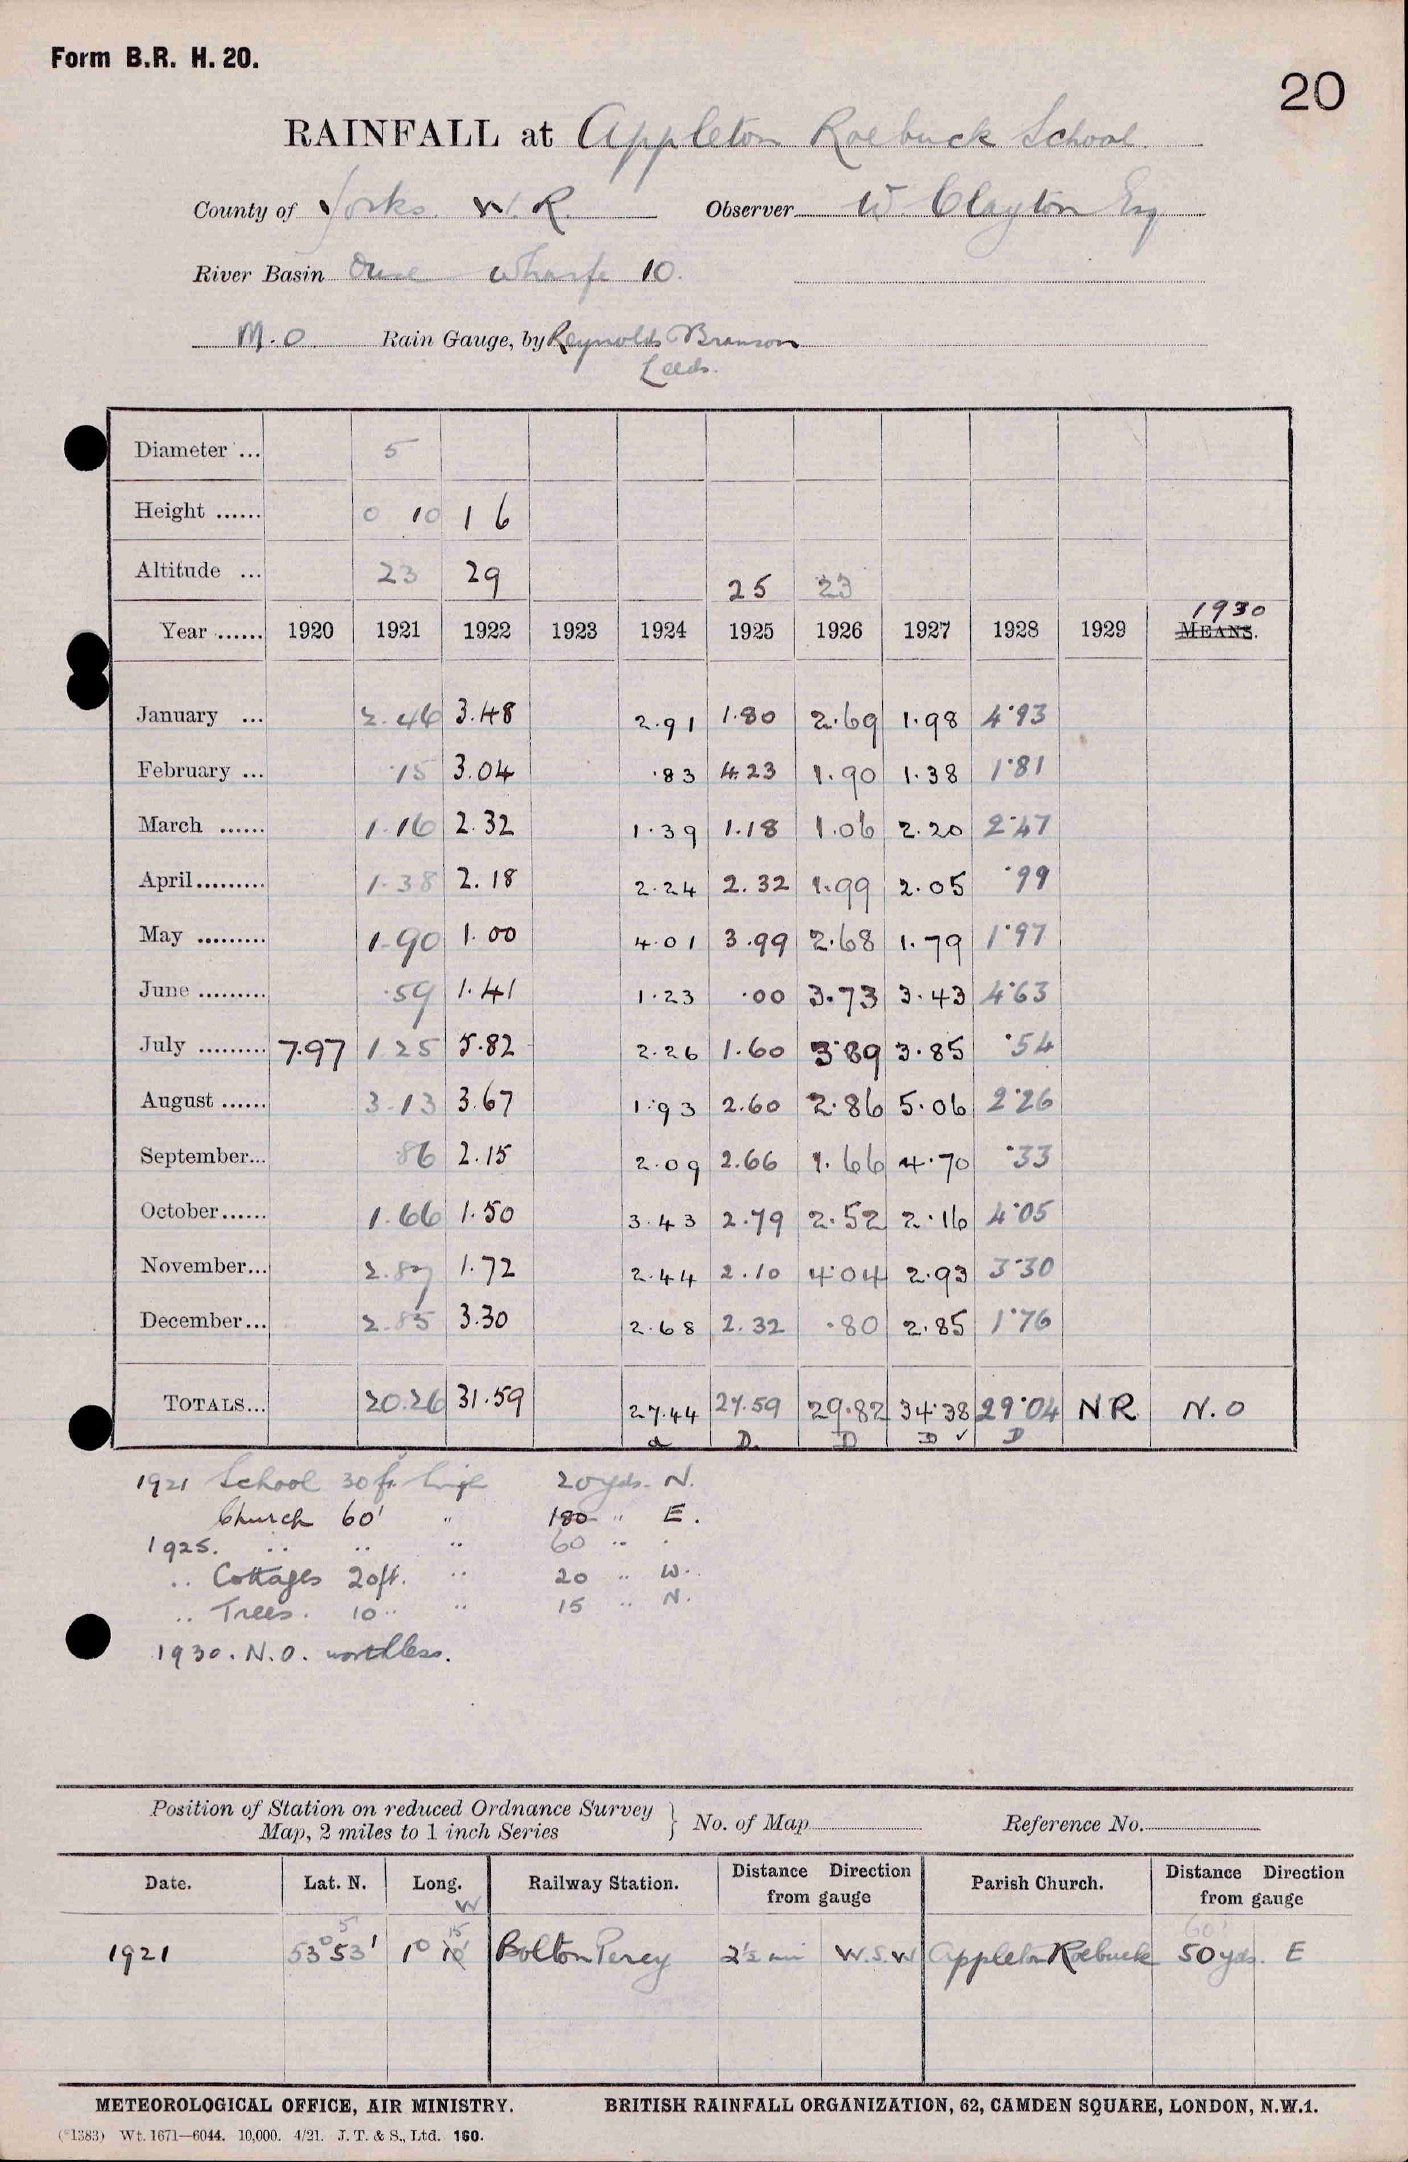 Form B.R. H. 20.
20
RAINFALL at Appleton Roebuck School
County of Yorks. W.R. Observer W. Clayton Esq
River Basin Ouse Wharfe 10.
M.O. Rain Gauge, by Reynolds Branson
Leeds.
Diameter ... 5
Height ...... 0 10 1 6
Altitude ... 23 29 25 23
1930
Year ...... 1920 1921 1922 1923 1924 1925 1926 1927 1928 1929 MEANS.
January ... 2.46 3.48 2.91 1.80 2.69 1.98 4.93
February ... .15 3.04 .83 4.23 1.90 1.38 1.81
March ...... 1.16 2.32 1.39 1.18 1.06 2.20 2.47
April......... 1.38 2.18 2.24 2.32 1.99 2.05 .99
May ......... 1.90 1.00 4.01 3.99 2.68 1.79 1.97
June ......... .59 1.41 1.23 .00 3.73 3.43 4.63
July ......... 7.97 1.25 5.82 2.26 1.60 3.89 3.85 .54
August ...... 3.13 3.67 1.93 2.60 2.86 5.06 2.26
September... .86 2.15 2.09 2.66 1.66 4.70 .33
October...... 1.66 1.50 3.43 2.79 2.52 2.16 4.05
November... 2.87 1.72 2.44 2.10 4.04 2.93 3.30
December... 2.85 3.30 2.68 2.32 .80 2.85 1.76
TOTALS... 20.26 31.59 27.44 27.59 29.82 34.38 29.04 NR N.O
a D. D D ✓ D
1921 School 30 ft. high 20 yds. N.
Church 60' " 180 " E.
1925. .. .. .. 60 .. .
.. Cottages 20ft. .. 20 .. W.
.. Trees. 10 .. .. 15 .. N.
1930. N.O. worthless.
Position of Station on reduced Ordnance Survey
Map, 2 miles to 1 inch Series } No. of Map Reference No.
Date. Lat. N. Long. Railway Station. Distance Direction from gauge Parish Church. Distance Direction from gauge
W
5 15 60'
1921 53° 53' 1° 10' Bolton Percy 2½ mi W.S.W Appleton Roebuck 50 yds. E
METEOROLOGICAL OFFICE, AIR MINISTRY. BRITISH RAINFALL ORGANIZATION, 62, CAMDEN SQUARE, LONDON, N.W.1.
(*1383) Wt. 1671—6044. 10,000. 4/21. J. T. & S., Ltd. 160.